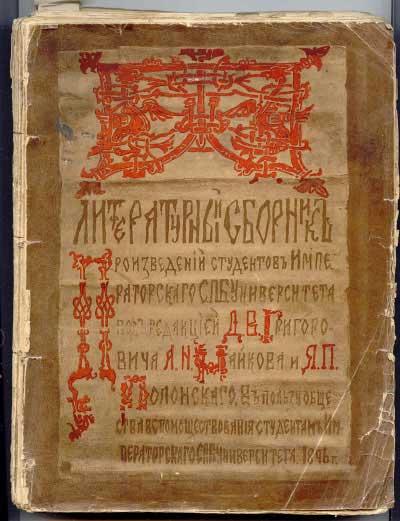 Литературный Сборникъ
Произведенiй студентовъ Импе-
раторскаго СПБ Университета
подъ редакцiей Д. В. Григоро-
вича А. Н. Майкова и Я. П.
Полонскаго. Въ пользу обще-
ства вспомоществованiя студентамъ Им-
ператорскаго СПБ Университета. 1896 г.